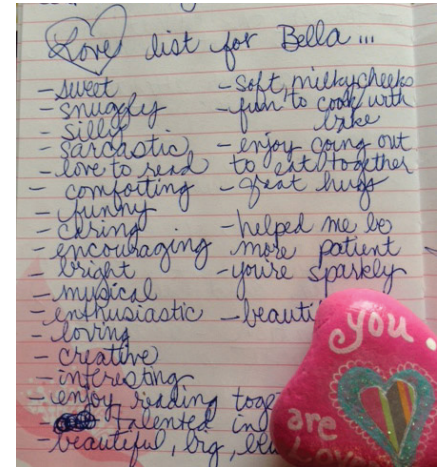 Love list for Bella...
- sweet
- snuggly
- silly
- sarcastic
- love to read
- comforting
- funny
- caring
- encouraging
- bright
- musical
- enthusiastic
- loving
- creative
- interesting
- enjoy reading toge
- talented in
- beautiful, big,
- soft, milky cheeks
- fun to cook with
bake
- enjoy going out
to eat together
- great hugs
- helped me be
more patient
- you're sparkly
- beauti
you
are